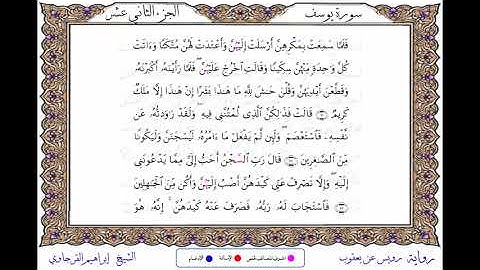 سورة يوسف
الجزء الثاني عشر
فَلَمَّا سَمِعَتْ بِمَكْرِهِنَّ أَرْسَلَتْ إِلَيْهُنَّ وَأَعْتَدَتْ لَهُنَّ مُتَّكَـًٔا وَءَاتَتْ
كُلَّ وَٰحِدَةٍ مِّنْهُنَّ سِكِّينًا وَقَالَتِ ٱخْرُجْ عَلَيْهُنَّ ۖ فَلَمَّا رَأَيْنَهُۥٓ أَكْبَرْنَهُۥ
وَقَطَّعْنَ أَيْدِيَهُنَّ وَقُلْنَ حَٰشَ لِلَّهِ مَا هَٰذَا بَشَرًا إِنْ هَٰذَآ إِلَّا مَلَكٌ
كَرِيمٌ قَالَتْ فَذَٰلِكُنَّ ٱلَّذِى لُمْتُنَّنِى فِيهِ ۖ وَلَقَدْ رَٰوَدتُّهُۥ عَن
نَّفْسِهِۦ فَٱسْتَعْصَمَ ۖ وَلَئِن لَّمْ يَفْعَلْ مَآ ءَامُرُهُۥ لَيُسْجَنَنَّ وَلَيَكُونًا
مِّنَ ٱلصَّٰغِرِينَ قَالَ رَبِّ ٱلسَّجْنُ أَحَبُّ إِلَىَّ مِمَّا يَدْعُونَنِىٓ
إِلَيْهِ ۖ وَإِلَّا تَصْرِفْ عَنِّى كَيْدَهُنَّ أَصْبُ إِلَيْهُنَّ وَأَكُن مِّنَ ٱلْجَٰهِلِينَ
فَٱسْتَجَابَ لَهُۥ رَبُّهُۥ فَصَرَفَ عَنْهُ كَيْدَهُنَّ ۚ إِنَّهُۥ هُوَ
رواية رويس عن يعقوب
الإمالة
الإدغام
الشيخ إبراهيم القرجاوي